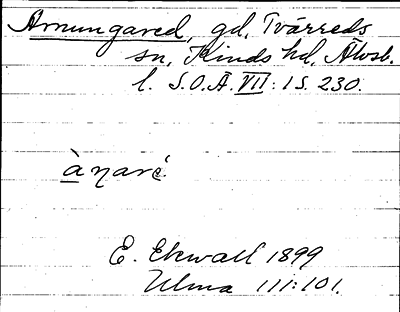 Arnungared, gd, Tvärreds
sn, Kinds hd, Älvsb.
l. S.O.Ä. VII:1 S. 230.
àŋaré
E. Ekwall 1899
Ulma 111:101.